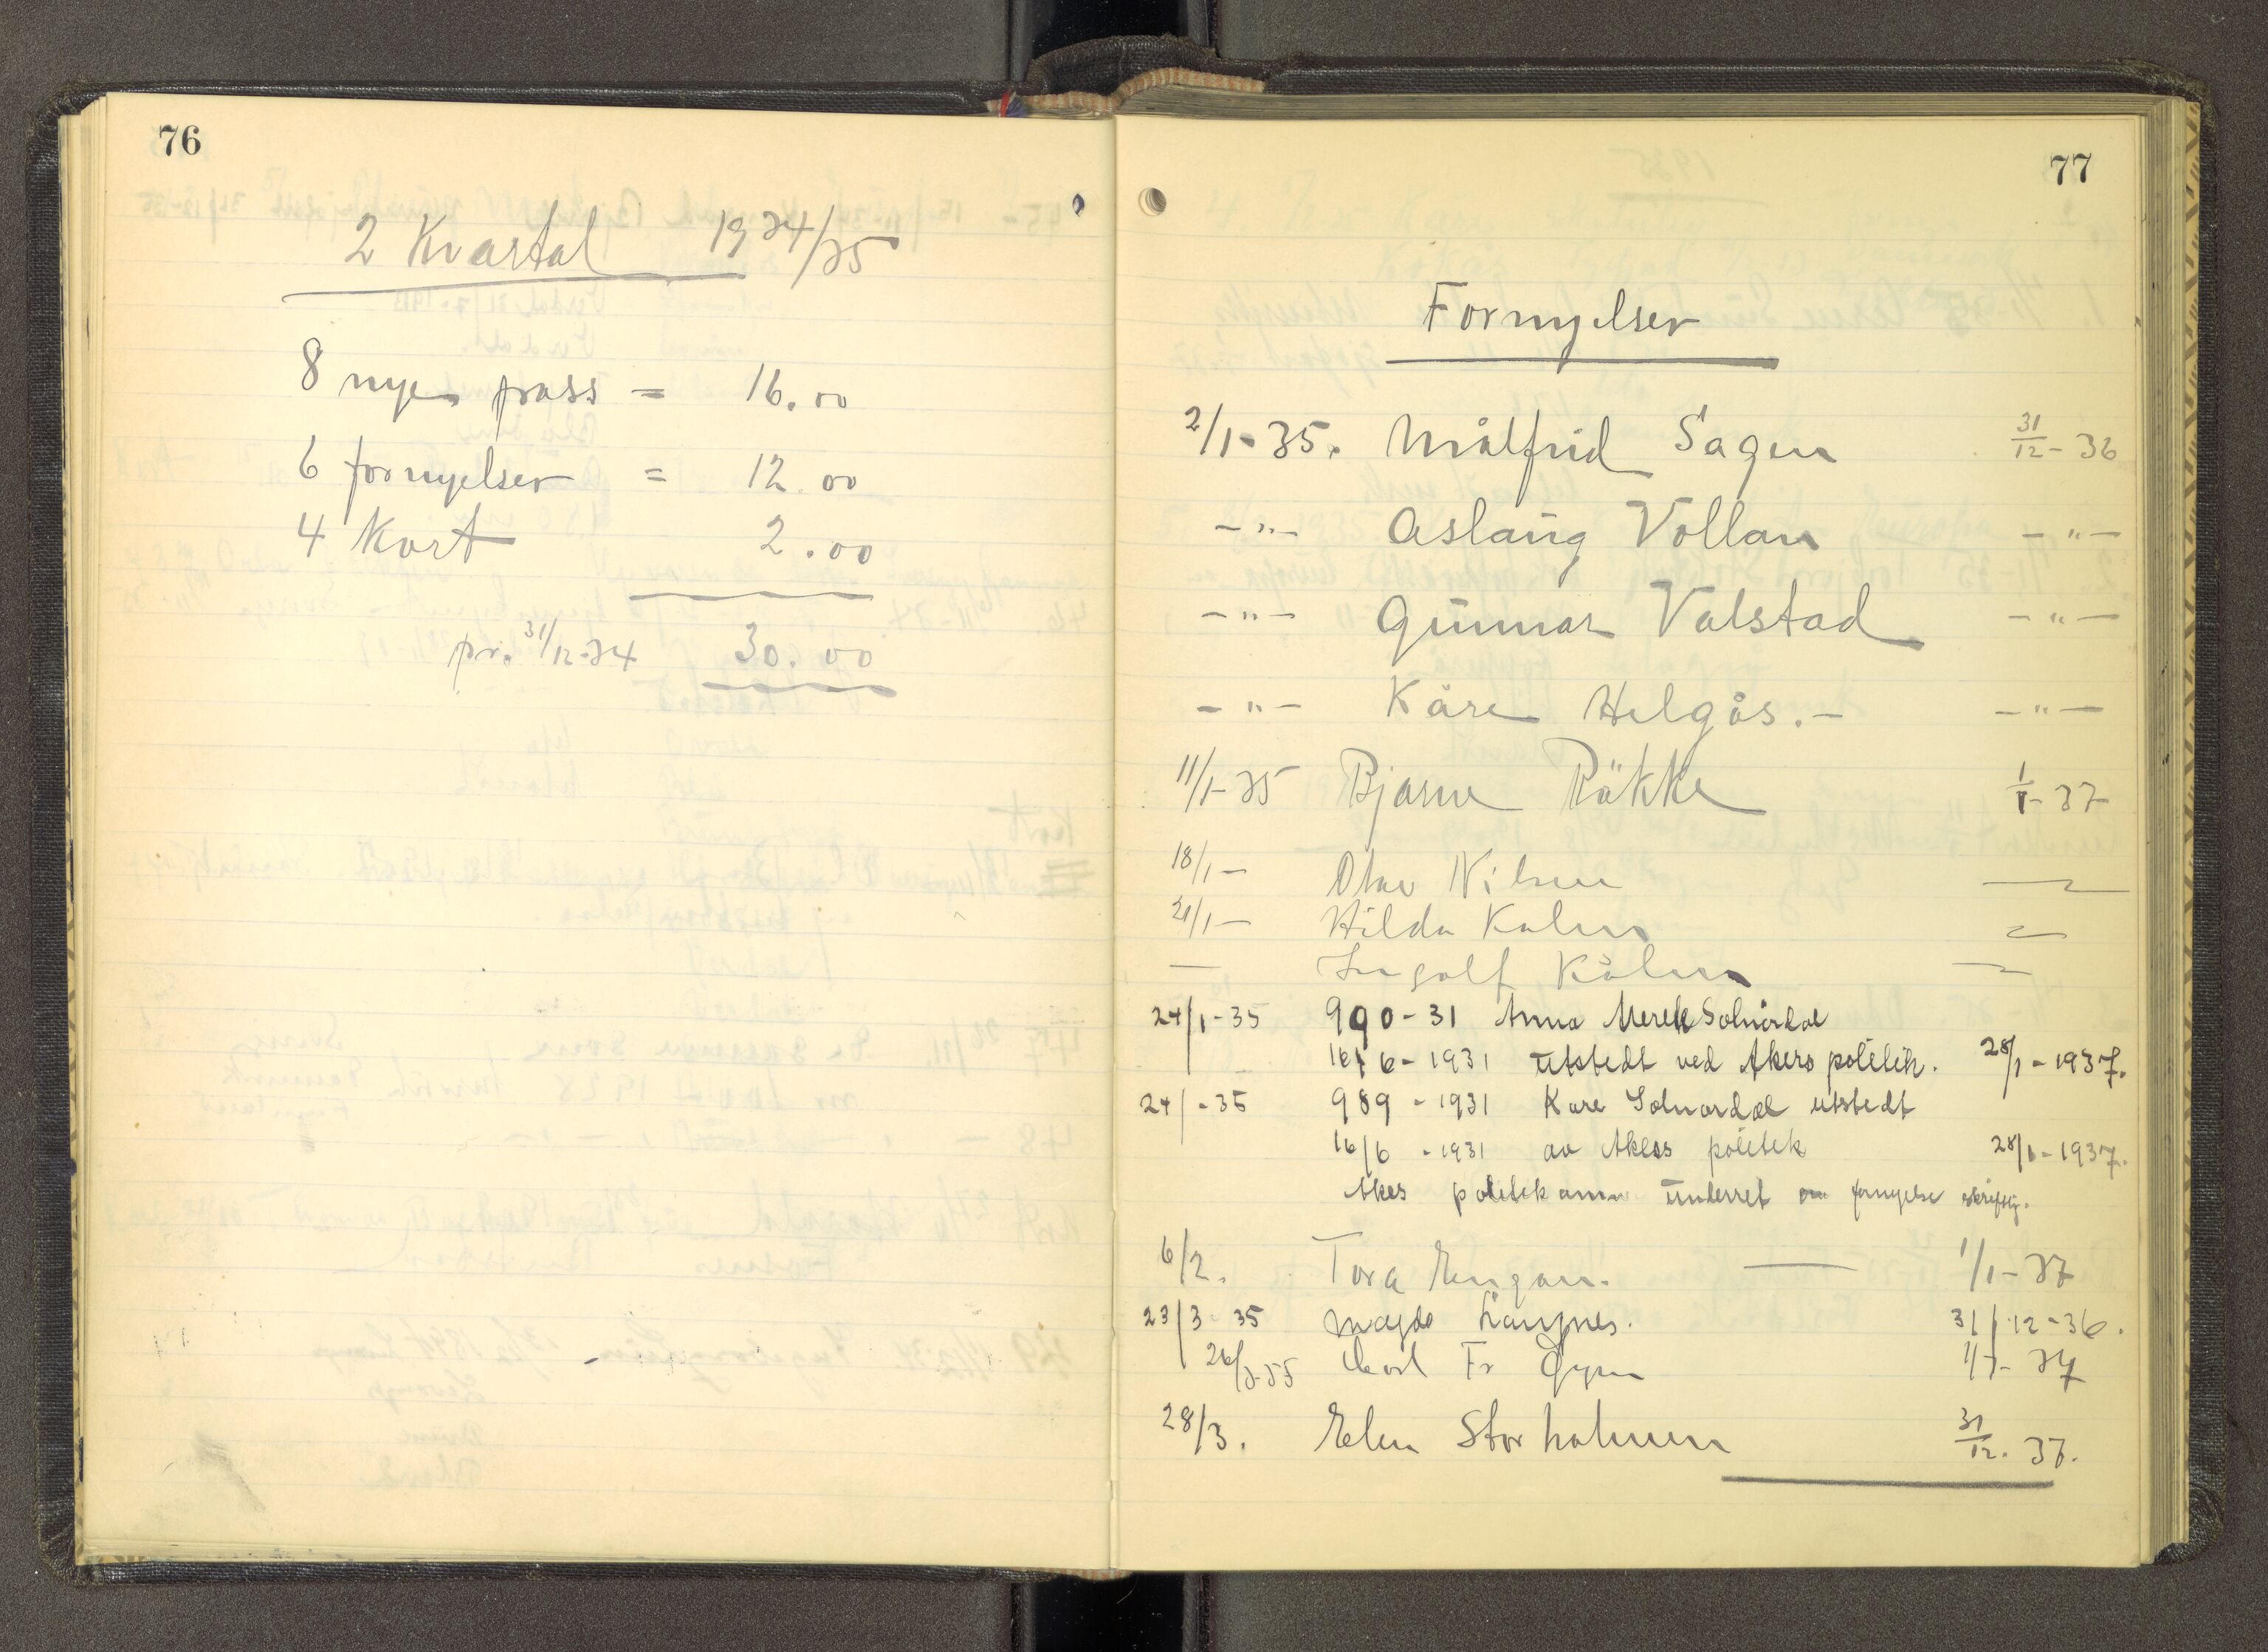 76
2 Kvartal 1934/35
8 nye pass = 16.00
6 fornyelser = 12.00
4 Kort 2.00
pr. 31/12-34 30.00
77
Fornyelser
2/1-35. Målfrid Sagen 31/12-36
-"- Aslaug Vollan -"-
-"- Gunnar Valstad -"-
-"- Kåre Helgås.- -"-
11/1-35 Bjarne Røkke 1/1-37
18/1- Olav Nilsen
21/1- Hilda Kålen
— Ingolf Kålen
24/1-35 990-31 Anna Merete Solnørdal
16/6-1931 utstedt ved Akers politik. 28/1-1937.
24/-35 989-1931 Kåre Solnørdal utstedt
16/6-1931 av Akers politik 28/1-1937.
Akers politikamm underret om fornyelse skriftlig.
6/2. Tora Engan. — 1/1-37
23/3-35 Magda 31/12-36.
26/3-35 Carl Fr 1/1-37
28/3. Elen Storholmen 31/12.37.